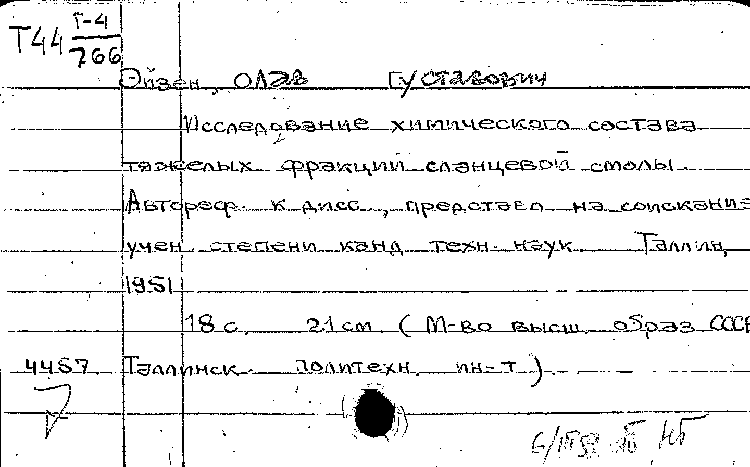 Т44 Т-4
766
Эйзен, Олав Густавович
Исследование химического состава
тяжелых фракций сланцевой смолы.
Автореф. к дисс., представл на соискание
учен. степени канд техн. наук. Таллин,
1951
18 с. 21 см. (М-во высш. образ СССР
4457 Таллинск. политехн. ин-т)